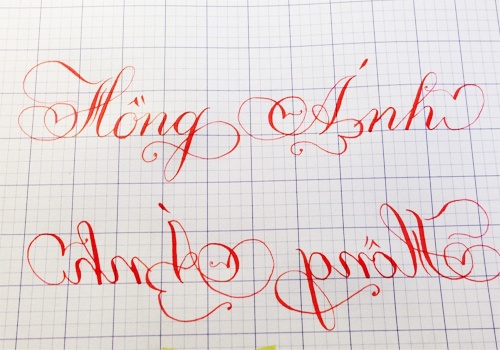 Hồng Ánh
Hồng Ánh